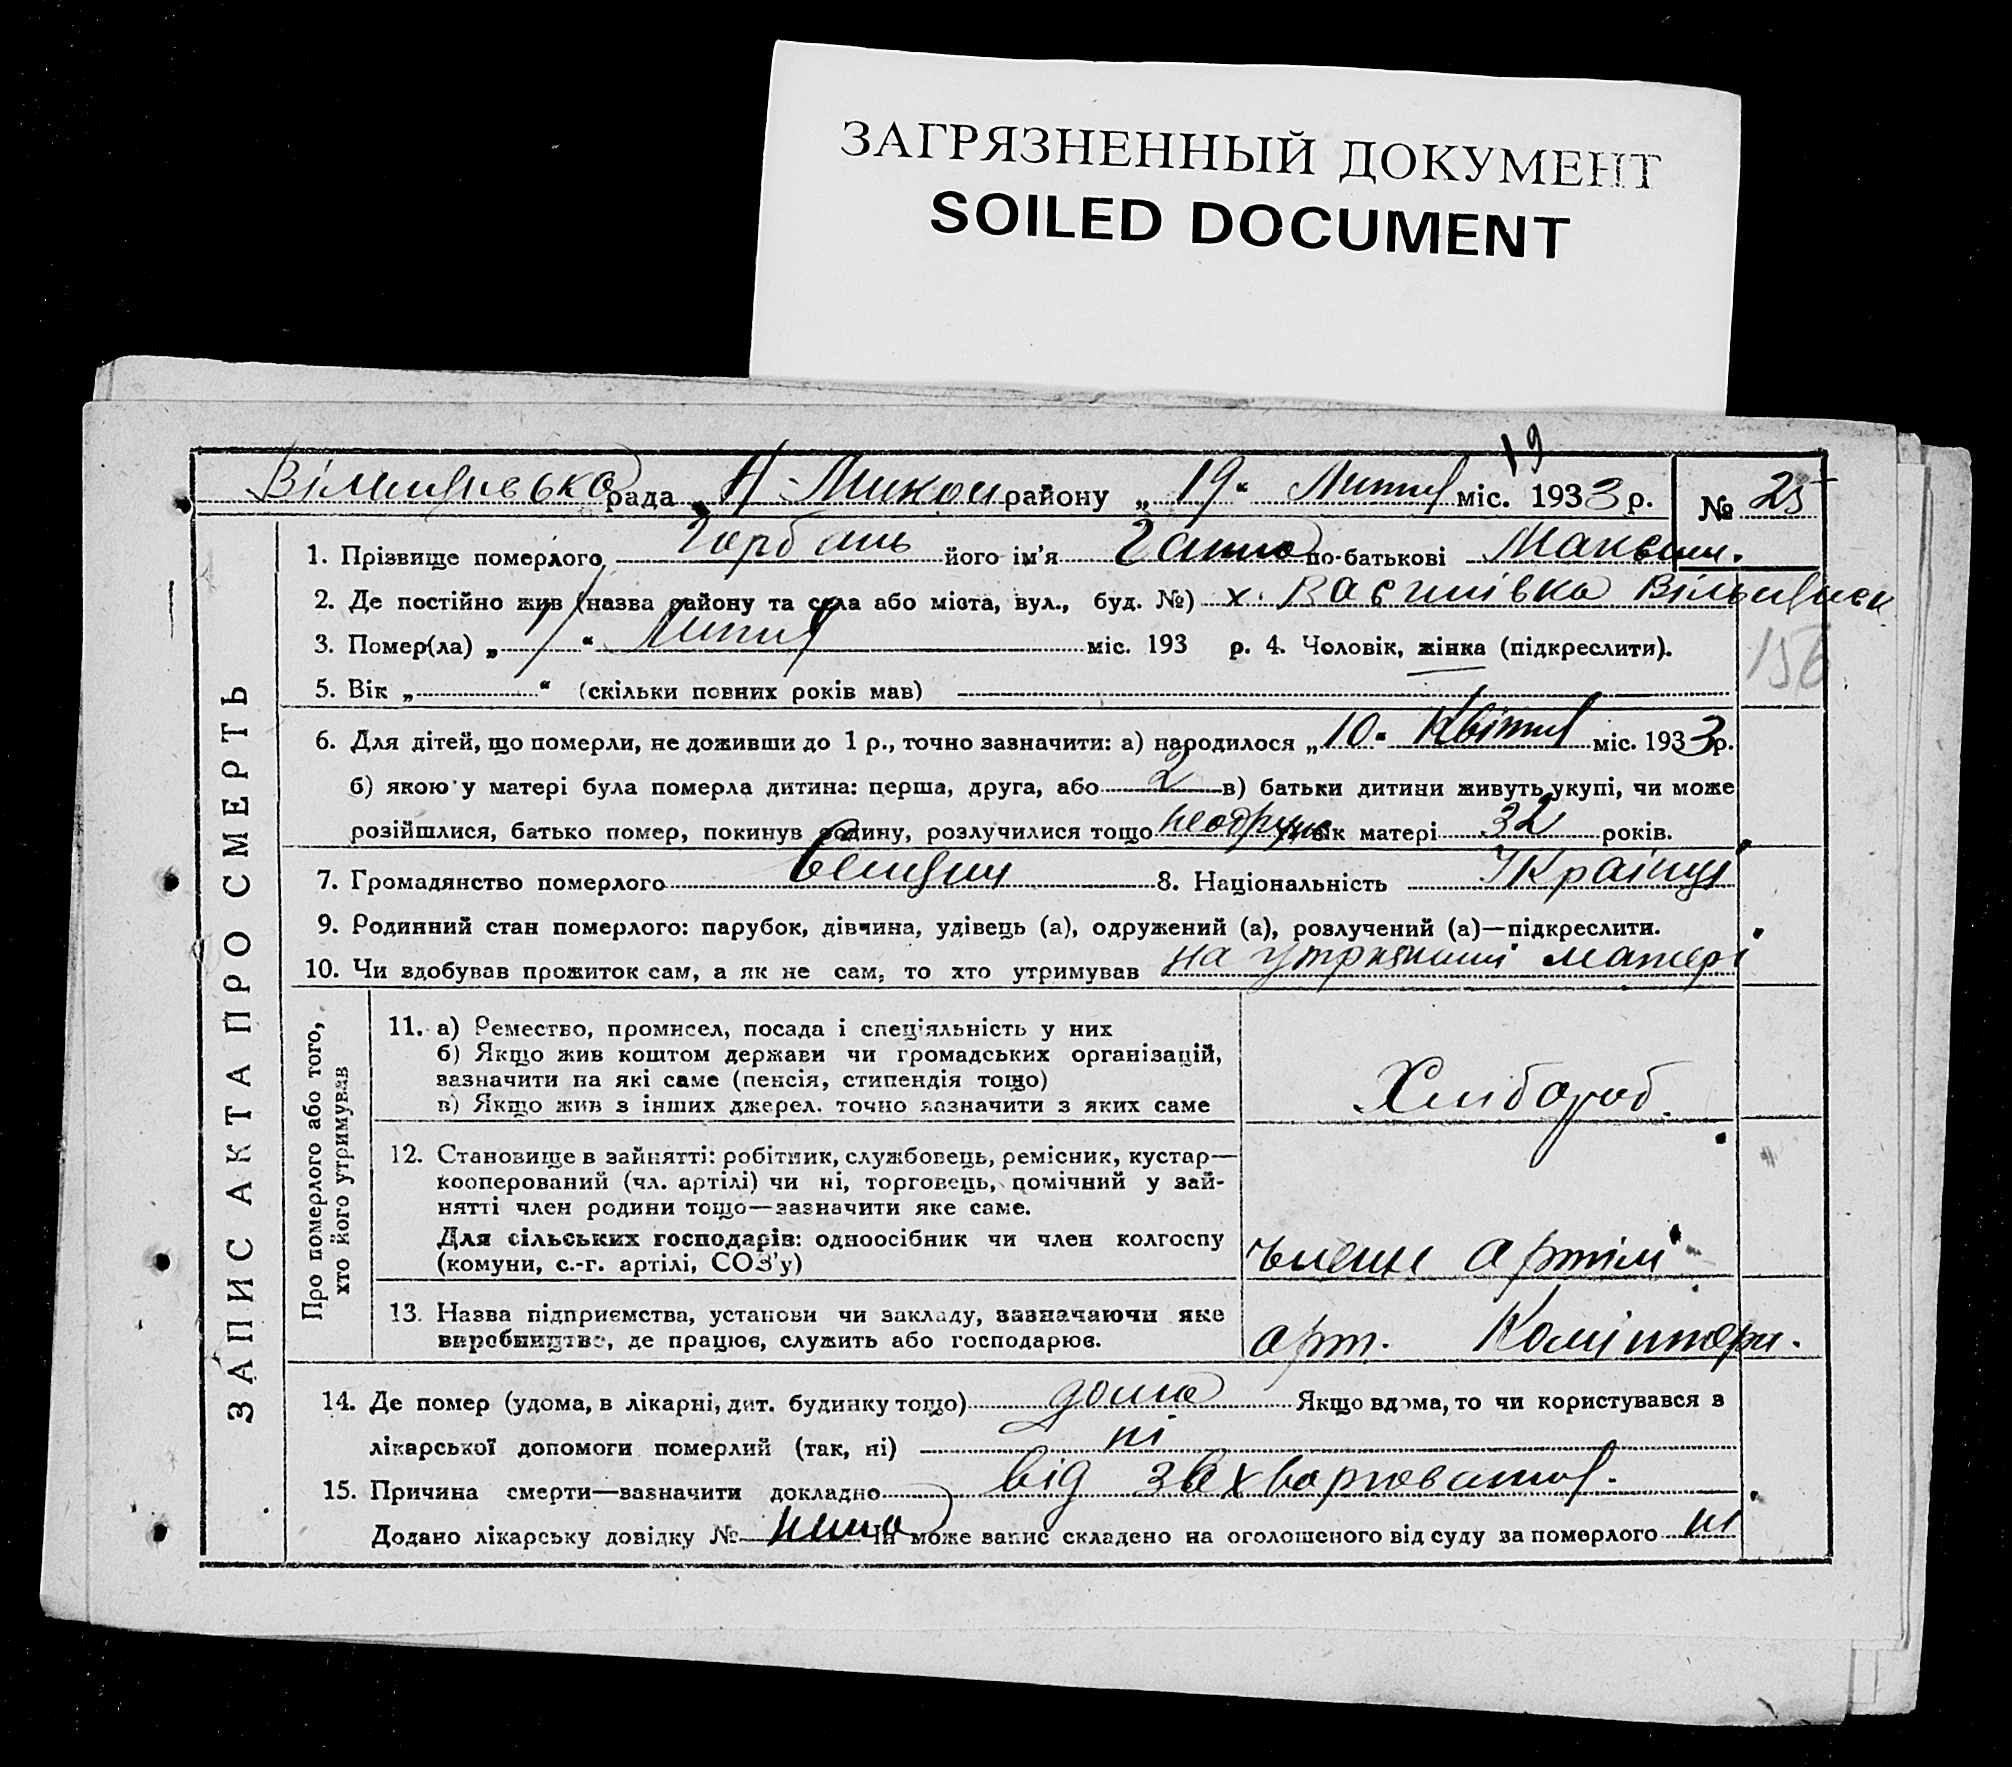 ЗАГРЯЗНЕННЫЙ ДОКУМЕНТ
SOILED DOCUMENT
19
рада Н-Микол району „ 19 “ Липня міс. 1933 р. № 25
ЗАПИС АКТА ПРО СМЕРТЬ
1. Прізвище померлого Горбань його ім'я Ганна по-батькові Максим.
2. Де постійно жив (назва району та села або міста, вул., буд. №) х.
3. Помер(ла) „ 17 “ Липня міс. 193 р. 4. Чоловік, жінка (підкреслити).
156
5. Вік „ “ (скільки повних років мав)
6. Для дітей, що померли, не доживши до 1 р., точно зазначити: а) народилося „ 10 “ Квітня міс. 1933 р.
б) якою у матері була померла дитина: перша, друга, або 2 в) батьки дитини живуть укупі, чи може
розійшлися, батько помер, покинув родину, розлучилися тощо вік матері 32 років.
7. Громадянство померлого 8. Національність Українці
9. Родинний стан померлого: парубок, дівчина, удівець (а), одружений (а), розлучений (а)—підкреслити.
10. Чи здобував прожиток сам, а як не сам, то хто утримував на утриманні матері
Про померлого або того, хто його утримував
11. а) Ремество, промисел, посада і спеціяльність у них
б) Якщо жив коштом держави чи громадських організацій,
зазначити на які саме (пенсія, стипендія тощо)
в) Якщо жив з інших джерел. точно зазначити з яких саме
Хлібороб.
12. Становище в зайнятті: робітник, службовець, ремісник, кустар—
кооперований (чл. артілі) чи ні, торговець, помічний у зай-
нятті член родини тощо—зазначити яке саме.
Для сільських господарів: одноосібник чи член колгоспу
(комуни, с.-г. артілі, СОЗ'у)
член артілі
13. Назва підприємства, установи чи закладу, зазначаючи яке
виробництво, де працює, служить або господарює.
арт. Комінтерн.
14. Де помер (удома, в лікарні, дит. будинку тощо) дома Якщо вдома, то чи користувався з
лікарської допомоги померлий (так, ні) ні
15. Причина смерти—зазначити докладно від захворювання.
Додано лікарську довідку № нема Чи може запис складено на оголошеного від суду за померлого ні